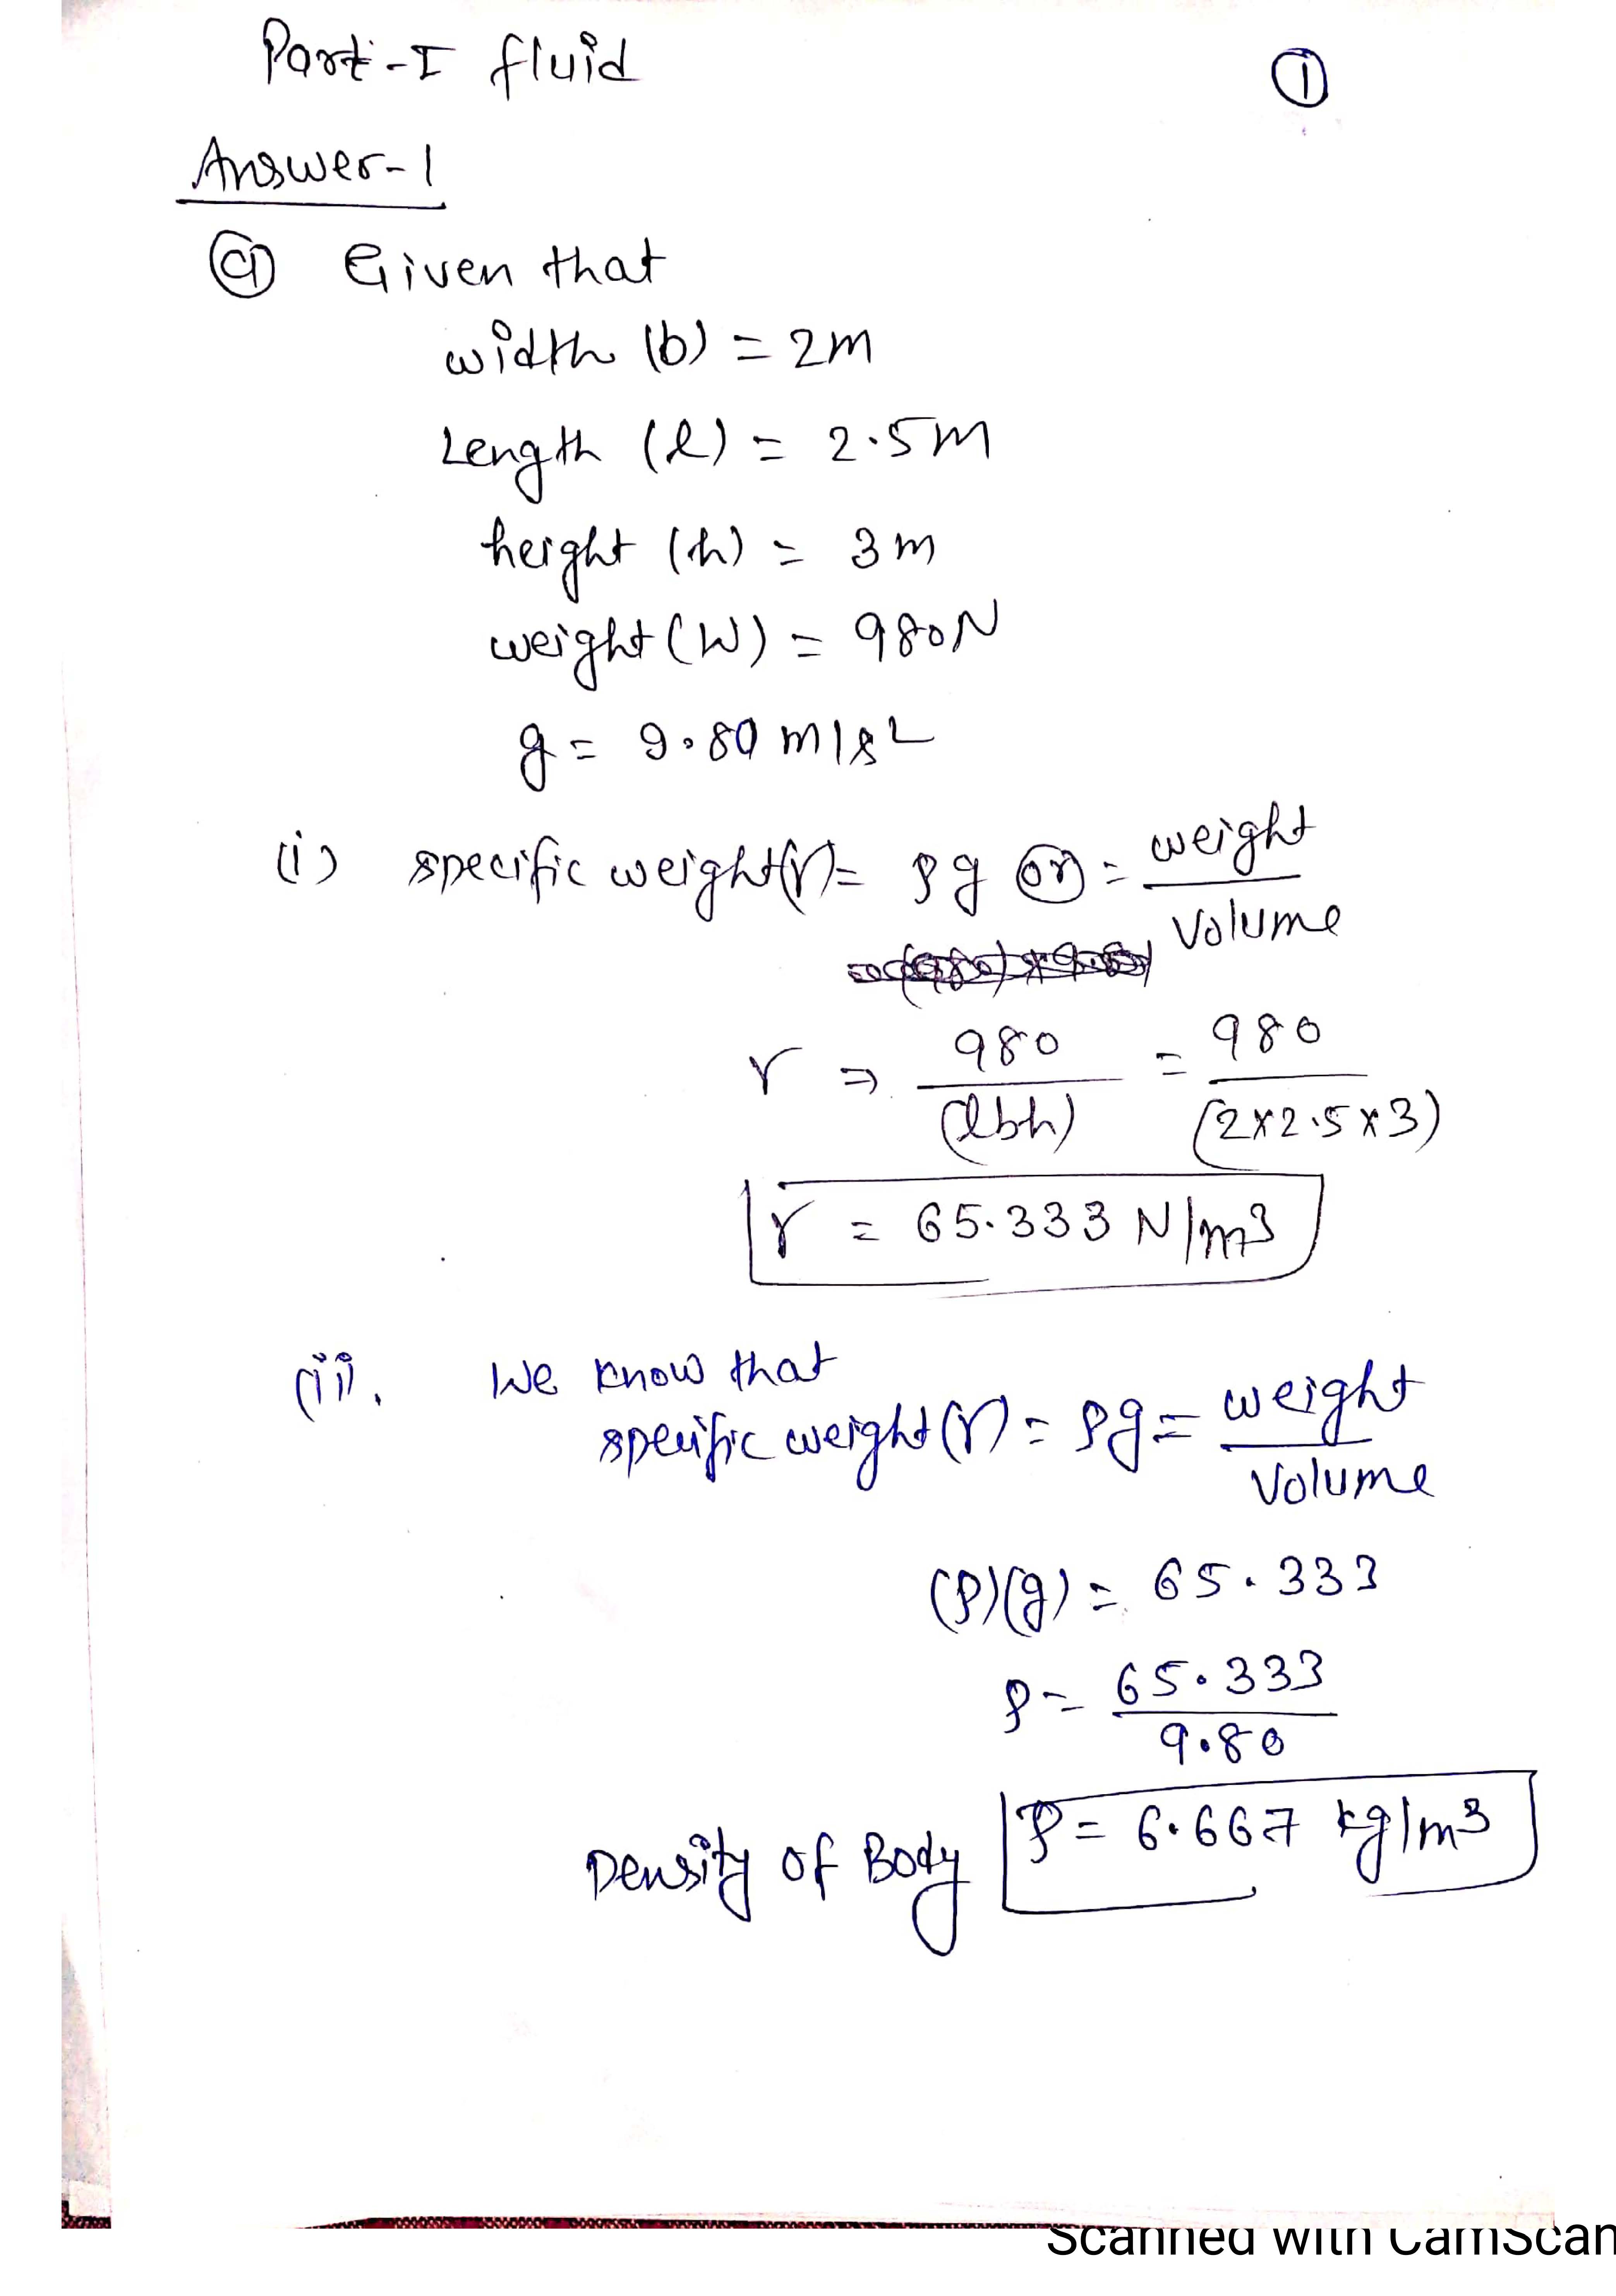 Part-I fluid
①
Answer-1
ⓐ Given that
width (b) = 2m
Length (l) = 2.5m
height (h) = 3m
weight (W) = 980N
g = 9.80 m/s²
(i) specific weight(γ) = ρg (or) = weight / Volume
γ ⇒ 980 / (lbh) = 980 / (2×2.5×3)
γ = 65.333 N/m³
(ii). We know that
specific weight(γ) = ρg = weight / Volume
(ρ)(g) = 65.333
ρ = 65.333 / 9.80
Density of Body ρ = 6.667 kg/m³
Scanned with CamScan